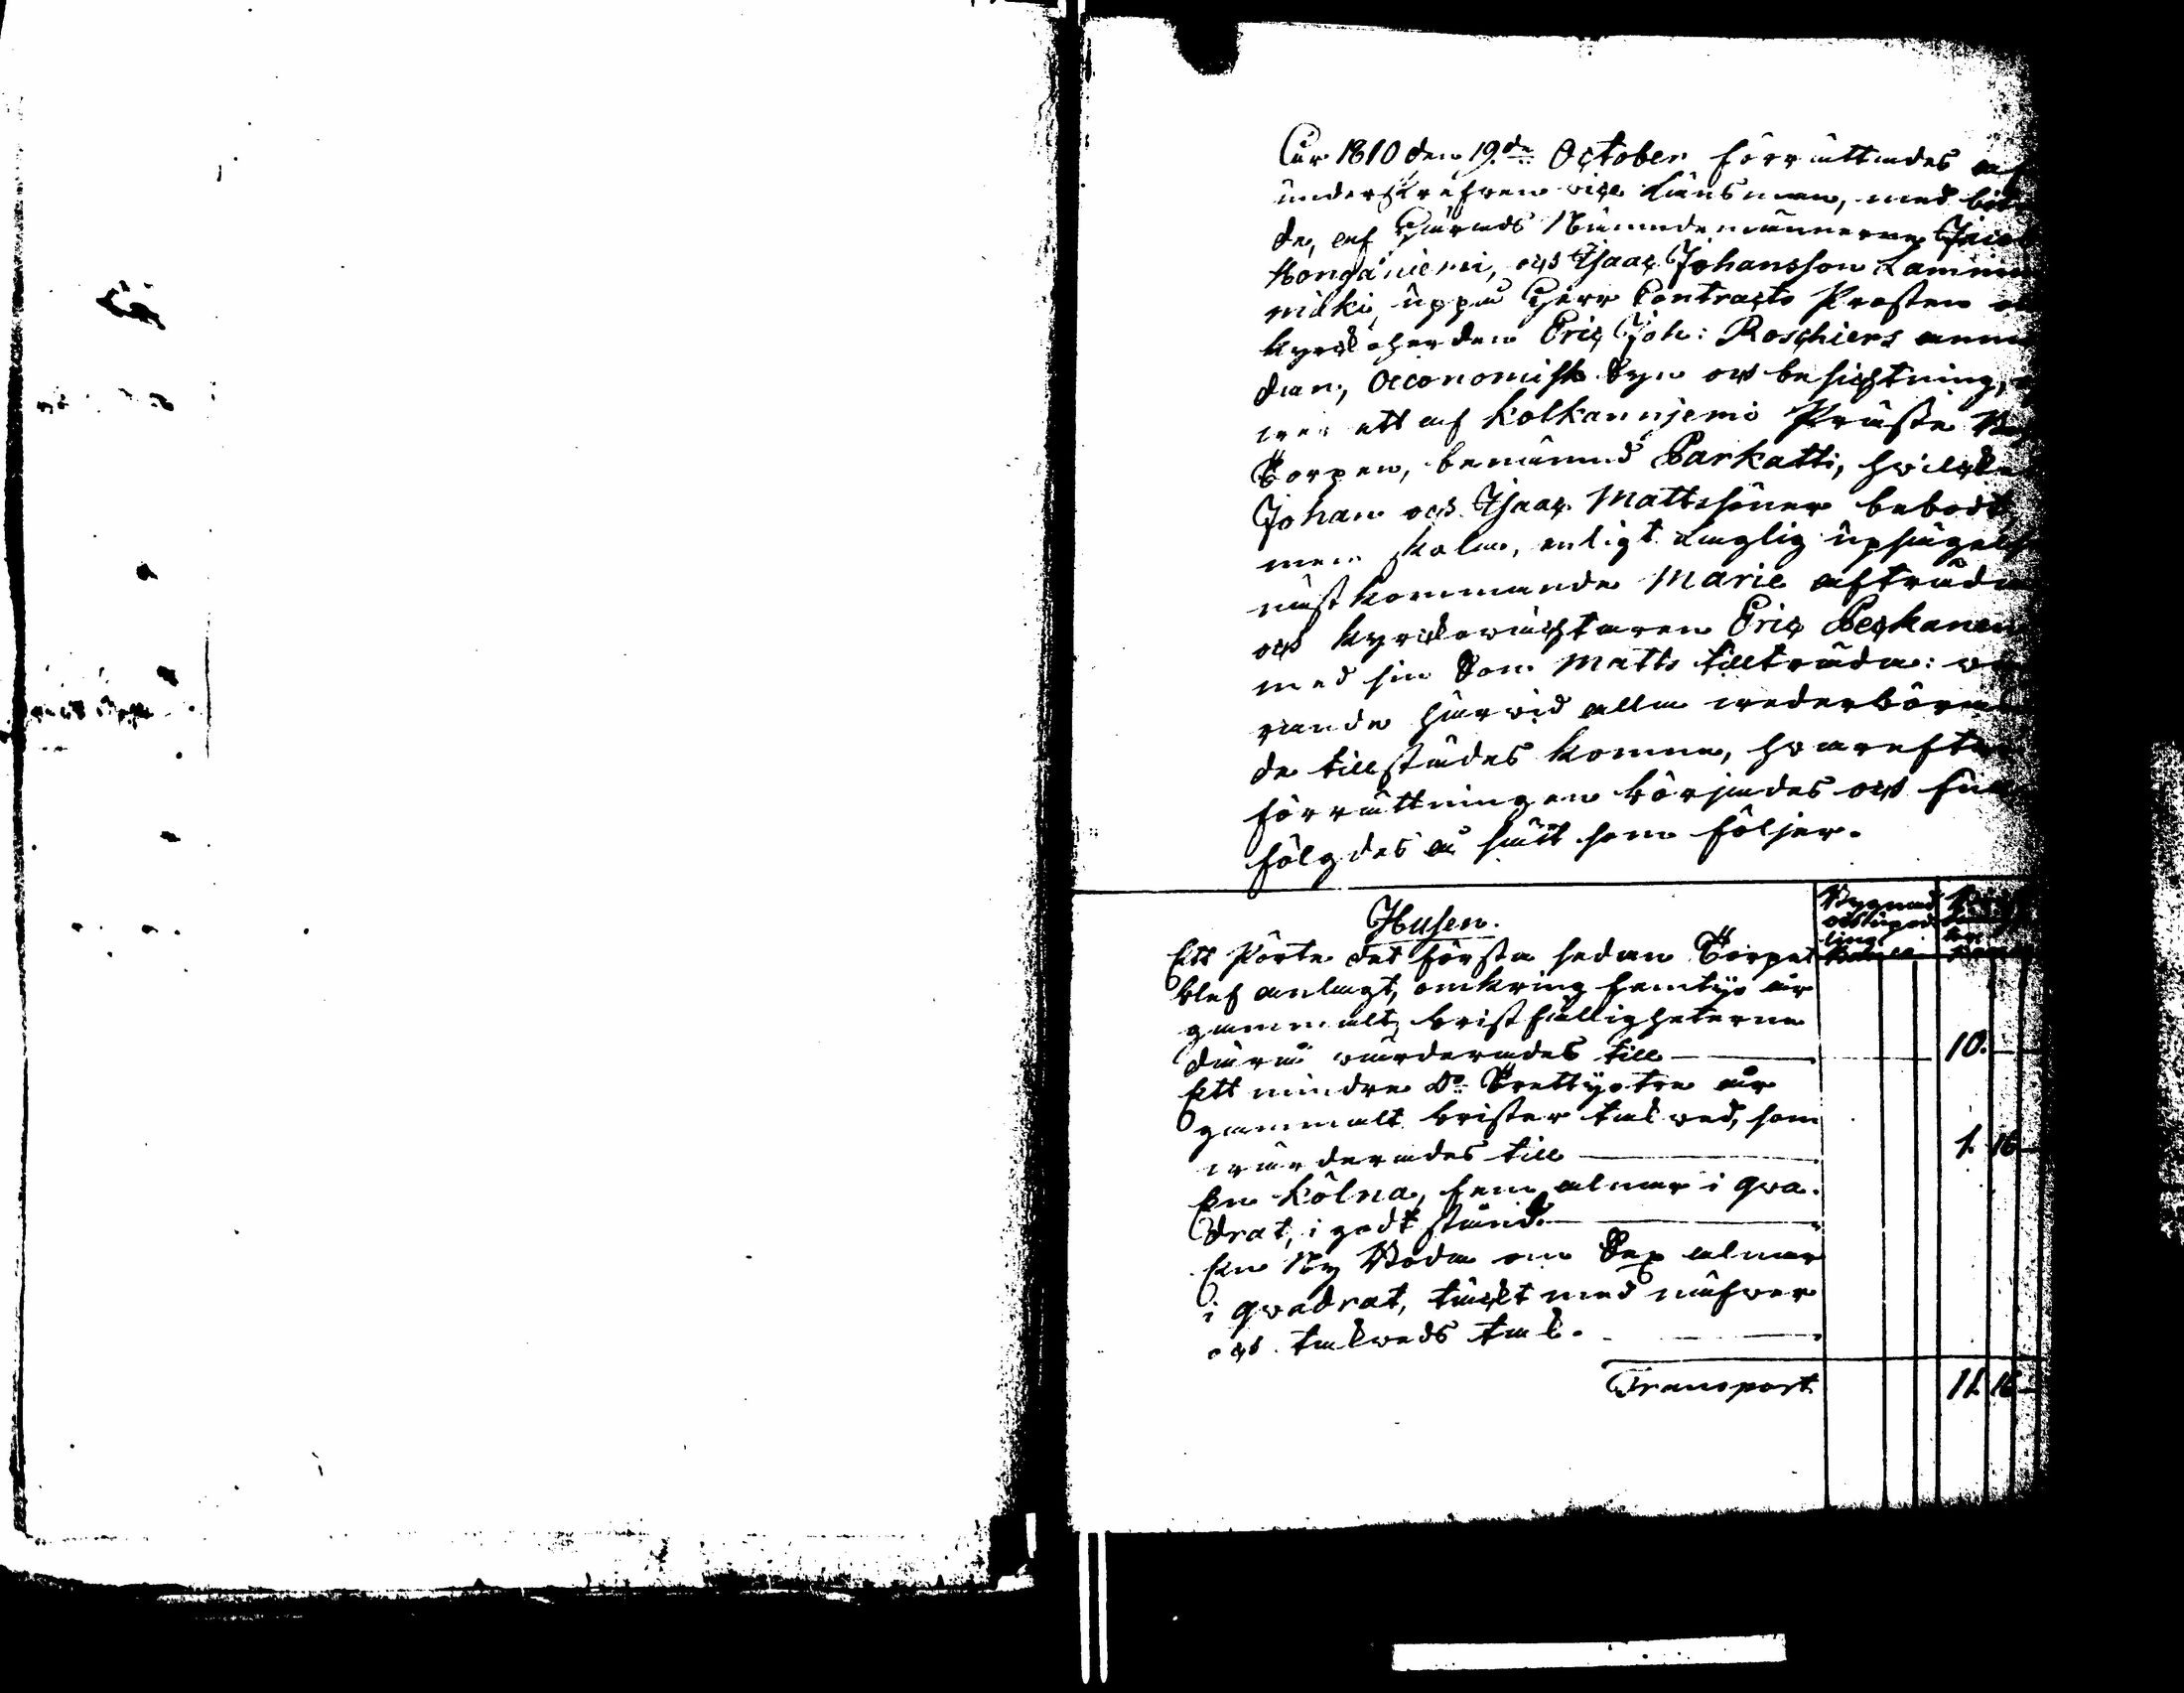 Åhr 1810 den 19de October förrättades af
underskrefven vice Länsman, med biträ
de, af Härads Nämndemännerne
Honganiemi, och Isaac Johansson Lamin
mäki, uppå Herr Contracts Prosten
Kyrckoherden Eric Joh: Roschiers anmo
dan, Oeconomisk Syn och besichtning,
wer ett af Kolkannjemi Präste
Torpen, benämnd Parkatti, hvilcke
Johan och Isaac Mattssöner bebodt,
men skola, enligt Laglig upsägelse
nästkommande Marie afträda
och Kyrckowäcktaren Eric Peckanen
med sin Son Matts tillträda: wa
rande härvid alla wederböran
de tillstädes komne, hvarefter
förrättningen börjades och full
fölgdes å sätt som följer.
Husen.
Ett Pörte det första sedan Torpet
blef anlagt, omkring femtijo år
gammalt, bristfälligheterne
därå värderades till — 10.
Ett mindre Do Trettijotre år
gammalt brister takved, som
wärderades till — 1. 16
En Kölna, fem alnar i qva-
drat, i godt stånd —
En Ny Boda om Sex alnar
i qvadrat, täckt med näfver
och takveds tak. —
Transport 11. 16